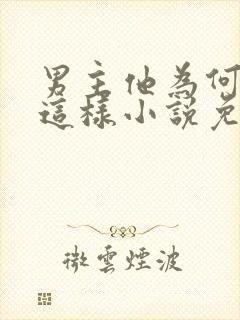 男主他為何
這樣小說免
微雲煙波